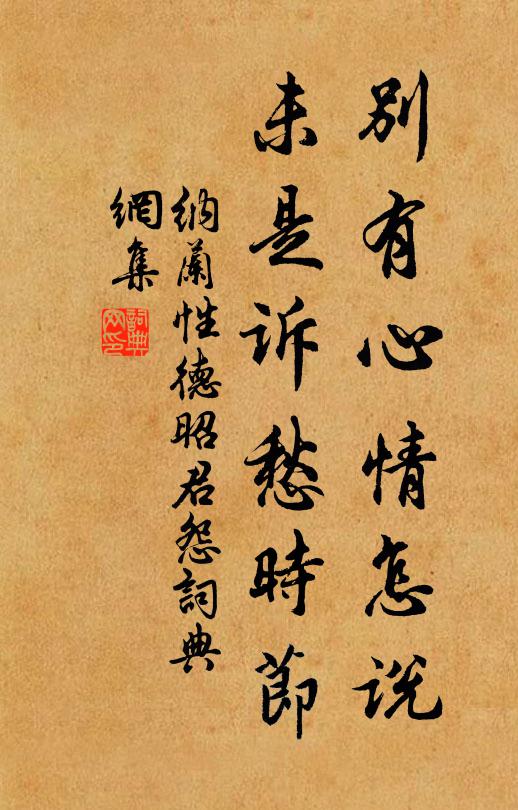 别有心情怎说
未是诉愁時節
纳蘭性德昭君怨詞典
網集
詞典
网印